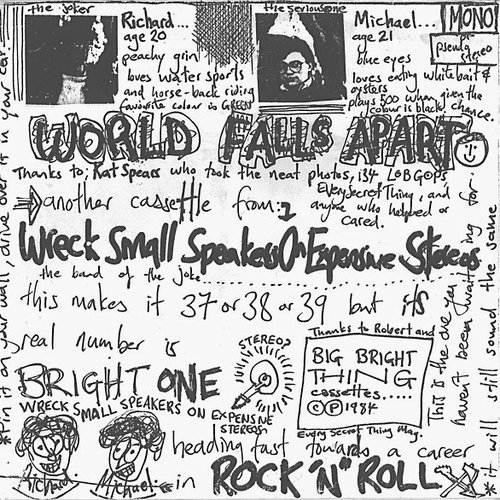 the joker
Richard...
age 20
peachy grin
loves water sports
and horse-back riding
favourite colour is GREEN
the serious one
Michael...
age 21
blue eyes
loves eating white bait &
oysters
plays 500 when given the
chance.
colour is black.
MONO!
or
pseudo
stereo
WORLD FALLS APART
Thanks to; Kat Spears who took the neat photos, i34, LOBGOPS,
Every Secret Thing, and
anyone who helped or
cared.
another cassette from:
Wreck Small Speakers On Expensive Stereos
the band of the joke
this makes it 37 or 38 or 39 but its
real number is
BRIGHT ONE
WRECK SMALL SPEAKERS ON EXPENSIVE
STEREOS
STEREO?
Thanks to Robert and
BIG BRIGHT
THING
cassettes.....
© Ⓟ 1984
Every Secret Thing Mag.
Richard
Michael
heading fast towards a career
in ROCK 'N' ROLL
*Pin it on your wall, drive over it in your car
This is the one you
haven't been waiting for
*it will still sound the same